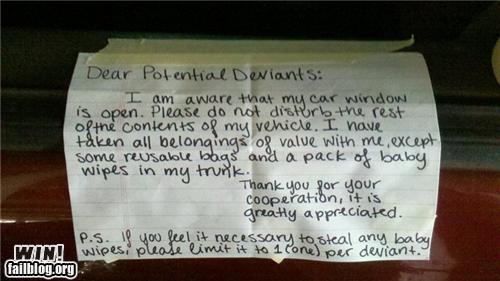 Dear Potential Deviants:
I am aware that my car window
is open. Please do not disturb the rest
of the contents of my vehicle. I have
taken all belongings of value with me, except
some reusable bags and a pack of baby
wipes in my trunk.
Thank you for your
cooperation, it is
greatly appreciated.
P.S. If you feel it necessary to steal any baby
wipes, please limit it to 1 (one) per deviant.
WIN!
failblog.org